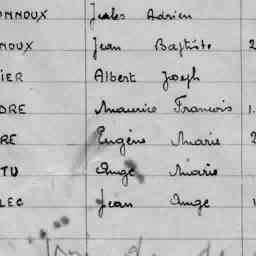 ONNOUX Jules Adrien
NOUX Jean Baptiste 2
IER Albert Joseph
DRE Maurice Francois 1
RE Eugène Marie 2
TU Ange Marie
LEC Jean Ange 1